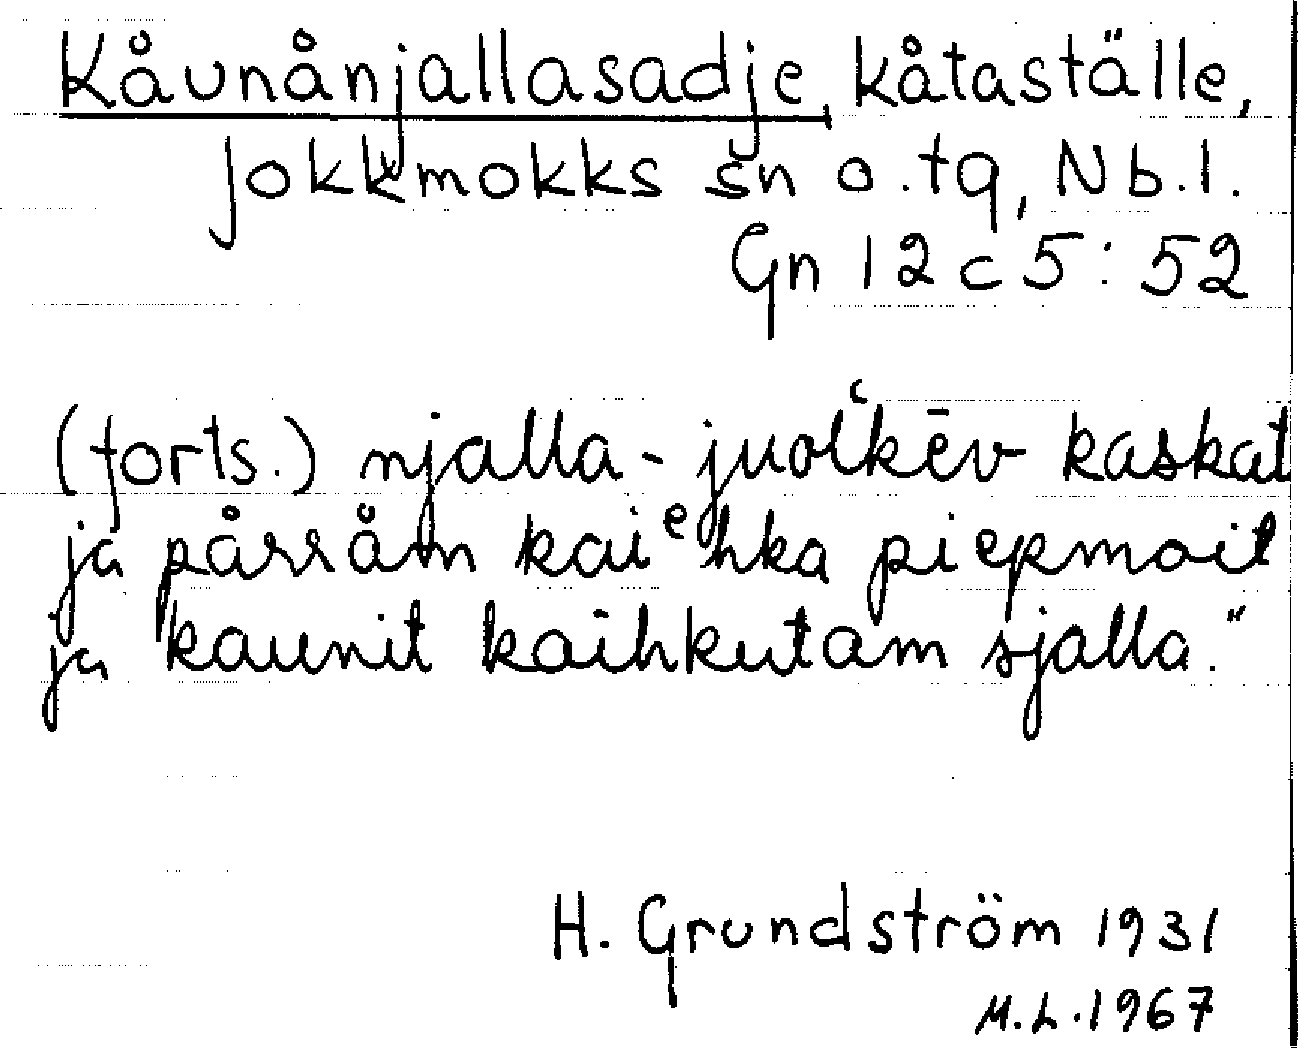 Kåunånjallasadje, kåtaställe,
Jokkmokks sn o. tg, Nb. l.
Gn 12 c 5 : 52
(forts.) njalla-juolʻkēv kaskat
ja pårråm kaiᵉhka piepmoit
ja kaunit kaihkutam sjalla."
H. Grundström 1931
M.L. 1967